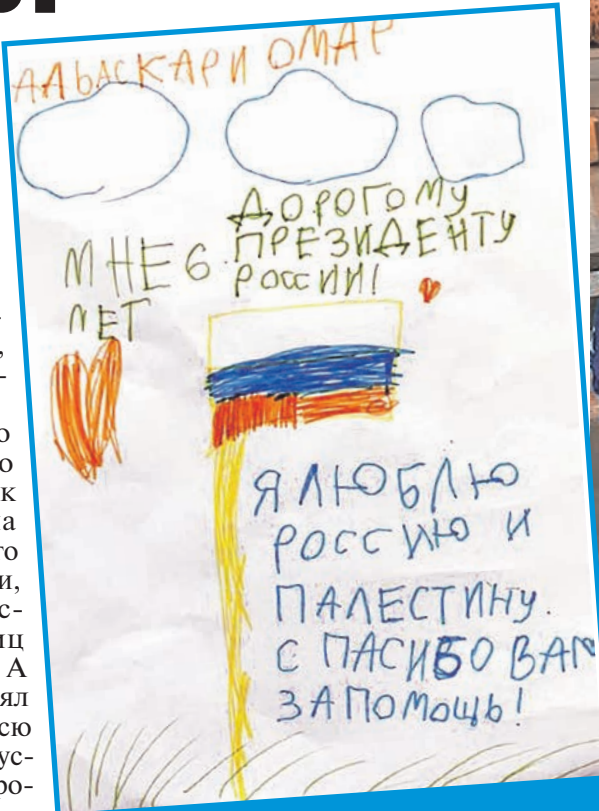 АЛЬАСКАРИ ОМАР
ДОРОГОМУ
МНЕ 6 ПРЕЗИДЕНТУ
ЛЕТ РОССИИ!
Я ЛЮБЛЮ
РОССИЮ И
ПАЛЕСТИНУ.
С ПАСИБО ВАМ
ЗА ПОМОЩЬ!